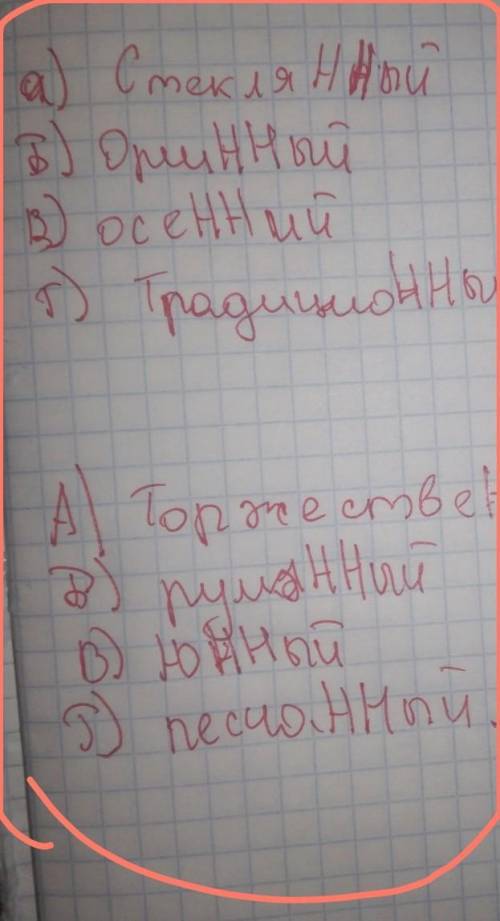 а) СтекляННый
Б) ОрлиННый
В) осеННий
Г) ТрадициоННы
А) Торжестве
Б) румяННый
В) ЮННый
Г) песчаННый.